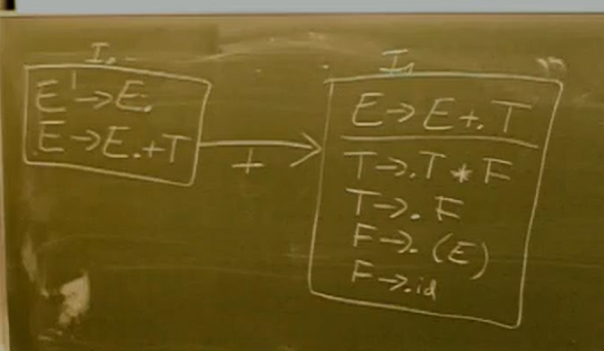 I₀
E'→E.
E→E.+T
+
I₁
E→E+.T
T→.T*F
T→.F
F→.(E)
F→.id